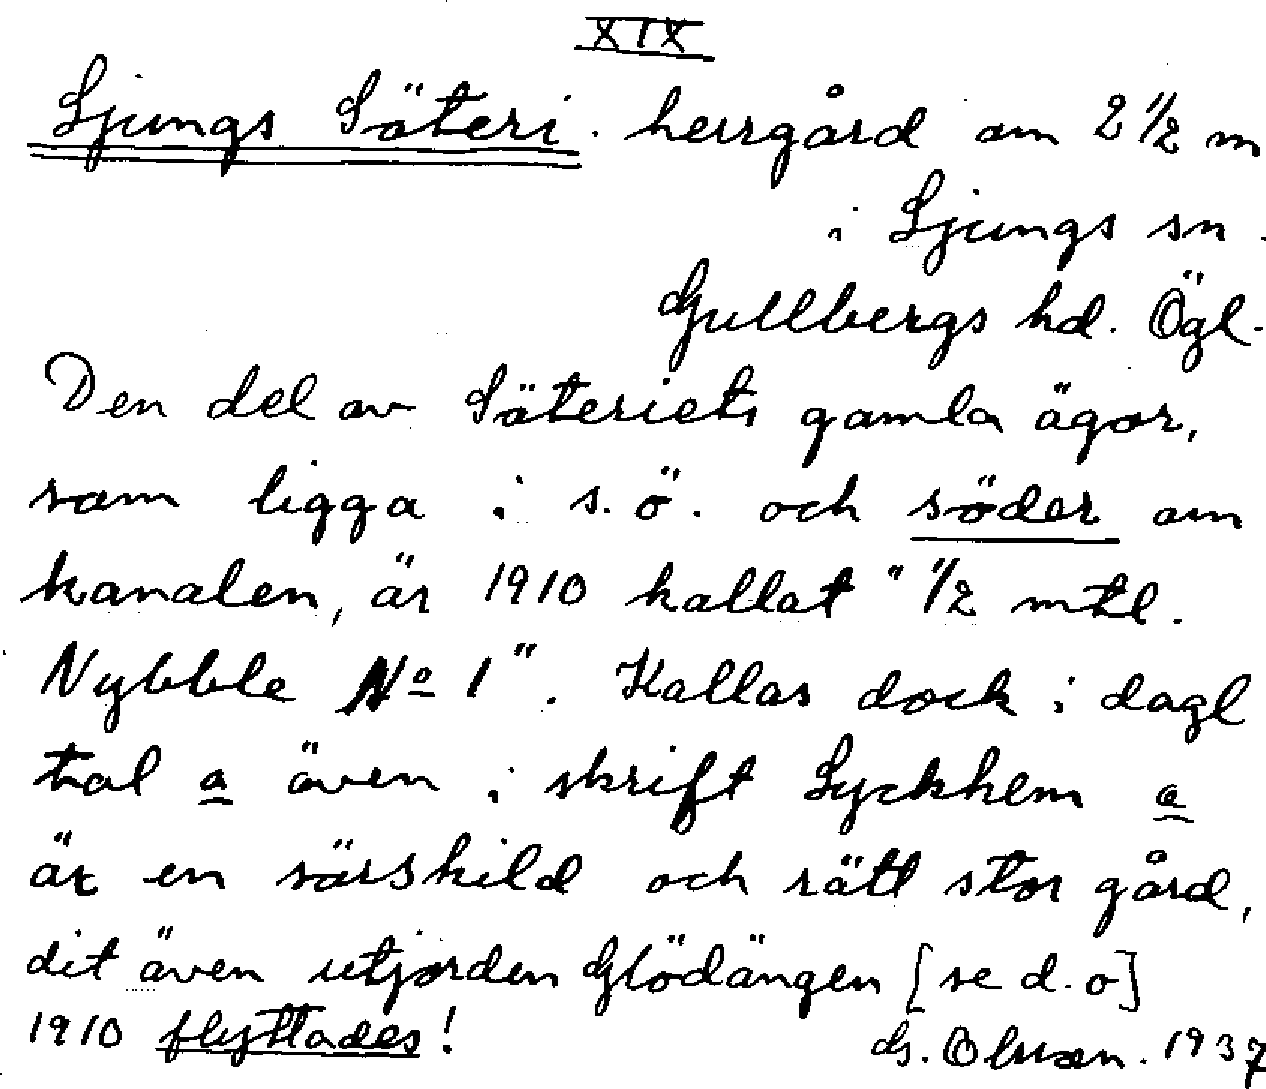 XIX
Ljungs Säteri. herrgård om 2 1/2 m
i Ljungs sn.
Gullbergs hd. Ögl.
Den del av Säteriets gamla ägor,
som ligga i s.ö. och söder om
kanalen, är 1910 kallat "1/2 mtl.
Nybble No 1". Kallas dock i dagl
tal a även i skrift Lyckhem a
är en särskild och rätt stor gård,
dit även utjorden Glödängen [se d.o]
1910 flyttades!
G. Olsson. 1937